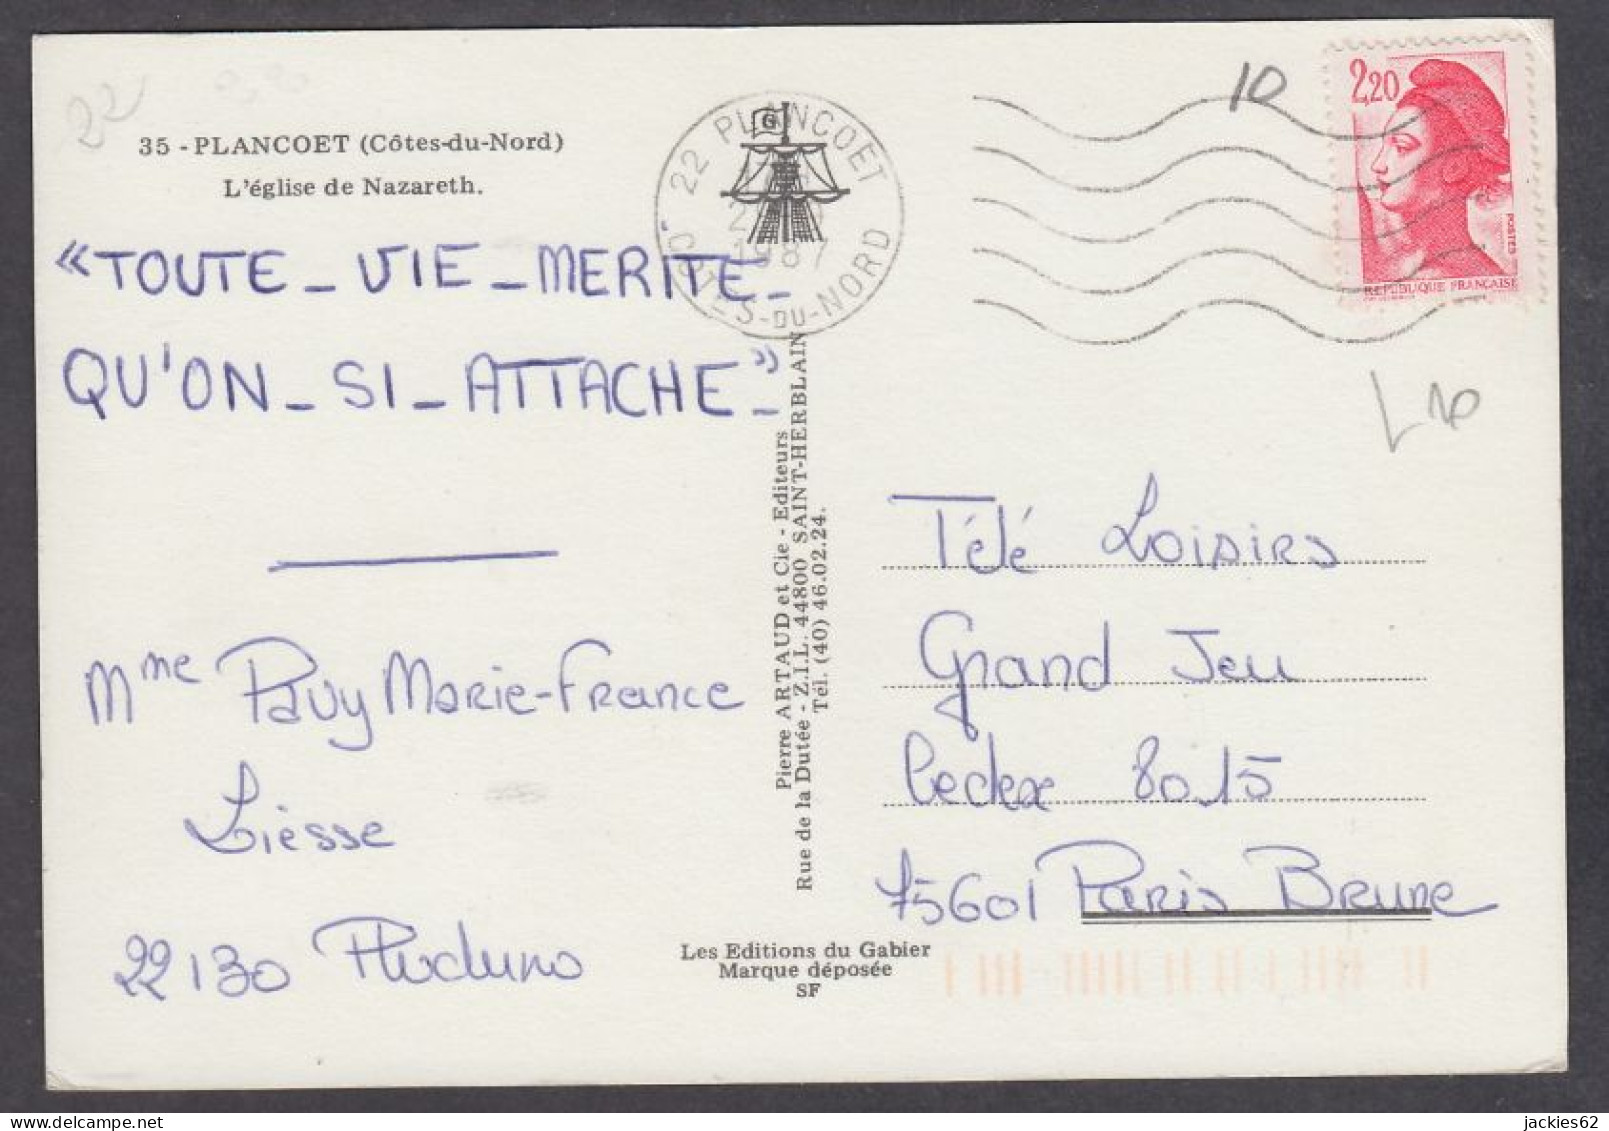 22
35 - PLANCOET (Côtes-du-Nord)
L'église de Nazareth.
« TOUTE - VIE - MERITE -
QU'ON - SI - ATTACHE » -
Mme Pavy Marie-France
Liesse
22130 Pluduno
22 PLANCOET
1987
CÔTES-DU-NORD
G
Pierre ARTAUD et Cie - Editeurs
Rue de la Dutée - Z.I.L. 44800 SAINT-HERBLAIN
Tél. (40) 46.02.24.
Les Editions du Gabier
Marque déposée
SF
10
2,20
POSTES
REPUBLIQUE FRANÇAISE
Télé Loisirs
Grand Jeu
Cedex 8015
75601 Paris Brune
jackies62